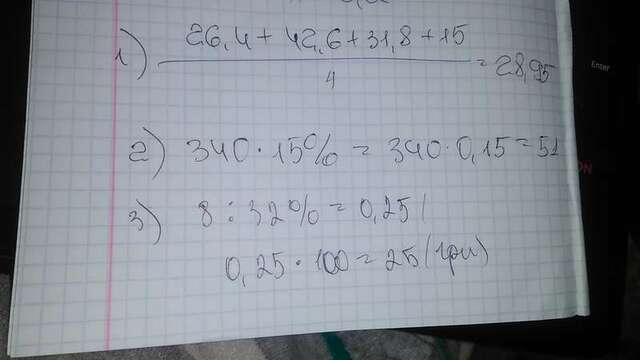 1) 26,4 + 42,6 + 31,8 + 15 / 4 = 28,95
2) 340 · 15% = 340 · 0,15 = 51
3) 8 : 32% = 0,25
0,25 · 100 = 25 (грн)
Enter